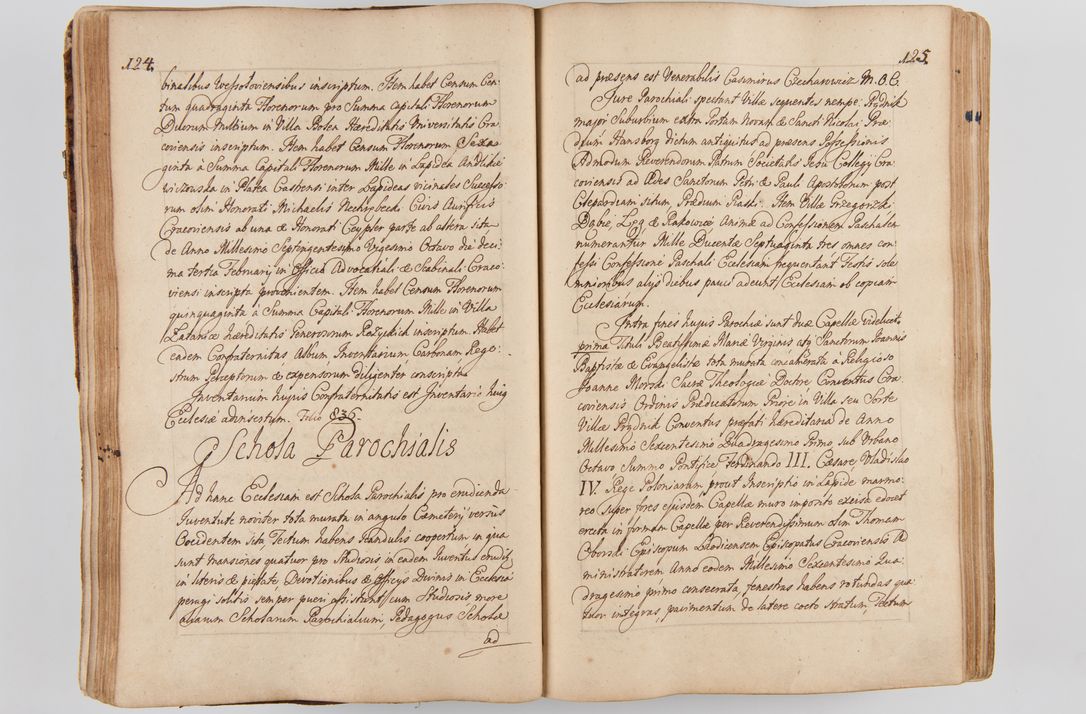 124.
binalibus Wesołoviensibus inscriptum. Item habet Censum Cen-
tum quadraginta Florenorum pro Summa Capitali Florenorum
Duorum Millium in Villa Hæreditatis Universitatis Cra-
coviensis inscriptum. Item habet Censum Florenorum Sexa-
ginta à Summa Capitali Florenorum Mille in Lapidea
in Platea Castrensi inter Lapideas vicinales Successo-
rum olim Honorati Michaelis Civis Aurificis
Cracoviensis ab una & Honorati Ceypler parte ab altera sita
de Anno Millesimo Septingentesimo Vigesimo Octavo die deci-
ma tertia Februarij in Officio Advocatiali & Scabinali Craco-
viensi inscripta provenientem. Item habet Censum Florenorum
quinquaginta à Summa Capitali Florenorum Mille in Villa
hæreditatis Generosorum inscriptum. Habet
eadem Confraternitas Album Inventarium Carbonam Rege-
strum Perceptorum & expensorum diligenter conscripta
Inventarium hujus Confraternitatis est Inventario hujus
Ecclesiæ adinsertum. Folio 836.
Schola Parochialis
Ad hanc Ecclesiam est Schola Parochialis pro erudienda
Juventute noviter tota murata in angulo Cæmeterij versus
Occidentem sita, Tectum habens scandulis coopertum in qua
sunt mansiones quatuor pro Studiosis in eadem Juventus erudit
in literis & pietate Devotionibus & Officijs Divinis in Ecclesia
peragi solitis semper pueri assistunt cum Studiosis more
aliarum Scholarum Parochialium, Pedagogus Scholæ
ad
125.
ad præsens est Venerabilis Casimirus Ciechanowicz M. O. C.
Jure Parochiali spectant Villæ sequentes nempe: Prądnik
major Suburbium extra Portam Novam & Sancti Nicolai Præ-
dium Hansborg dictum antiquitus ad præsens Possessionis
Admodum Reverendorum Patrum Societatis Jesu Collegij Cra-
coviensis ad Ædes Sanctorum Petri & Pauli Apostolorum post
Cleparduam situm Prædium Piaski. Item Villæ Grzegorzki
Dąbie, Łęg & Rakowice Animæ ad Confessionem Paschalem
numerantur Mille Ducentæ Septuaginta tres omnes con-
fessi Confessione Paschali Ecclesiam frequentant Festis sole
mnioribus alijs diebus pauci adeunt Ecclesiam ob copiam
Ecclesiarum.
Intra fines hujus Parochiæ sunt duæ Capellæ videlicet
prima Tituli Beatissimæ Mariæ Virginis atq Sanctorum Joannis
Baptistæ & Evangelistæ tota murata concamerata à Religioso
Joanne Morski Sacræ Theologiæ Doctre Conventus Cra-
coviensis Ordinis Prædicatorum Priore in Villa seu Sorte
Villæ Prądnik Conventus præfati hæreditaria de Anno
Millesimo Sexcentesimo Quadragesimo Primo, sub Urbano
Octavo Summo Pontifice Ferdinando III. Cæsare, Vladislao
IV. Rege Poloniarum, prout Inscriptio in Lapide marmo-
reo super fores ejusdem Capellæ muro imposito excisa edocet
erecta in formam Capellæ per Reverendissimum olim Thomam
Oborski Episcopum Laodicensem Episcopatus Cracoviensis Ad
ministratorem Anno eodem Millesimo Sexcentesimo Qua-
dragesimo primo consecrata, fenestras habens rotundas qua-
tuor integras, pavimentum de latere cocto stratum, Tectum